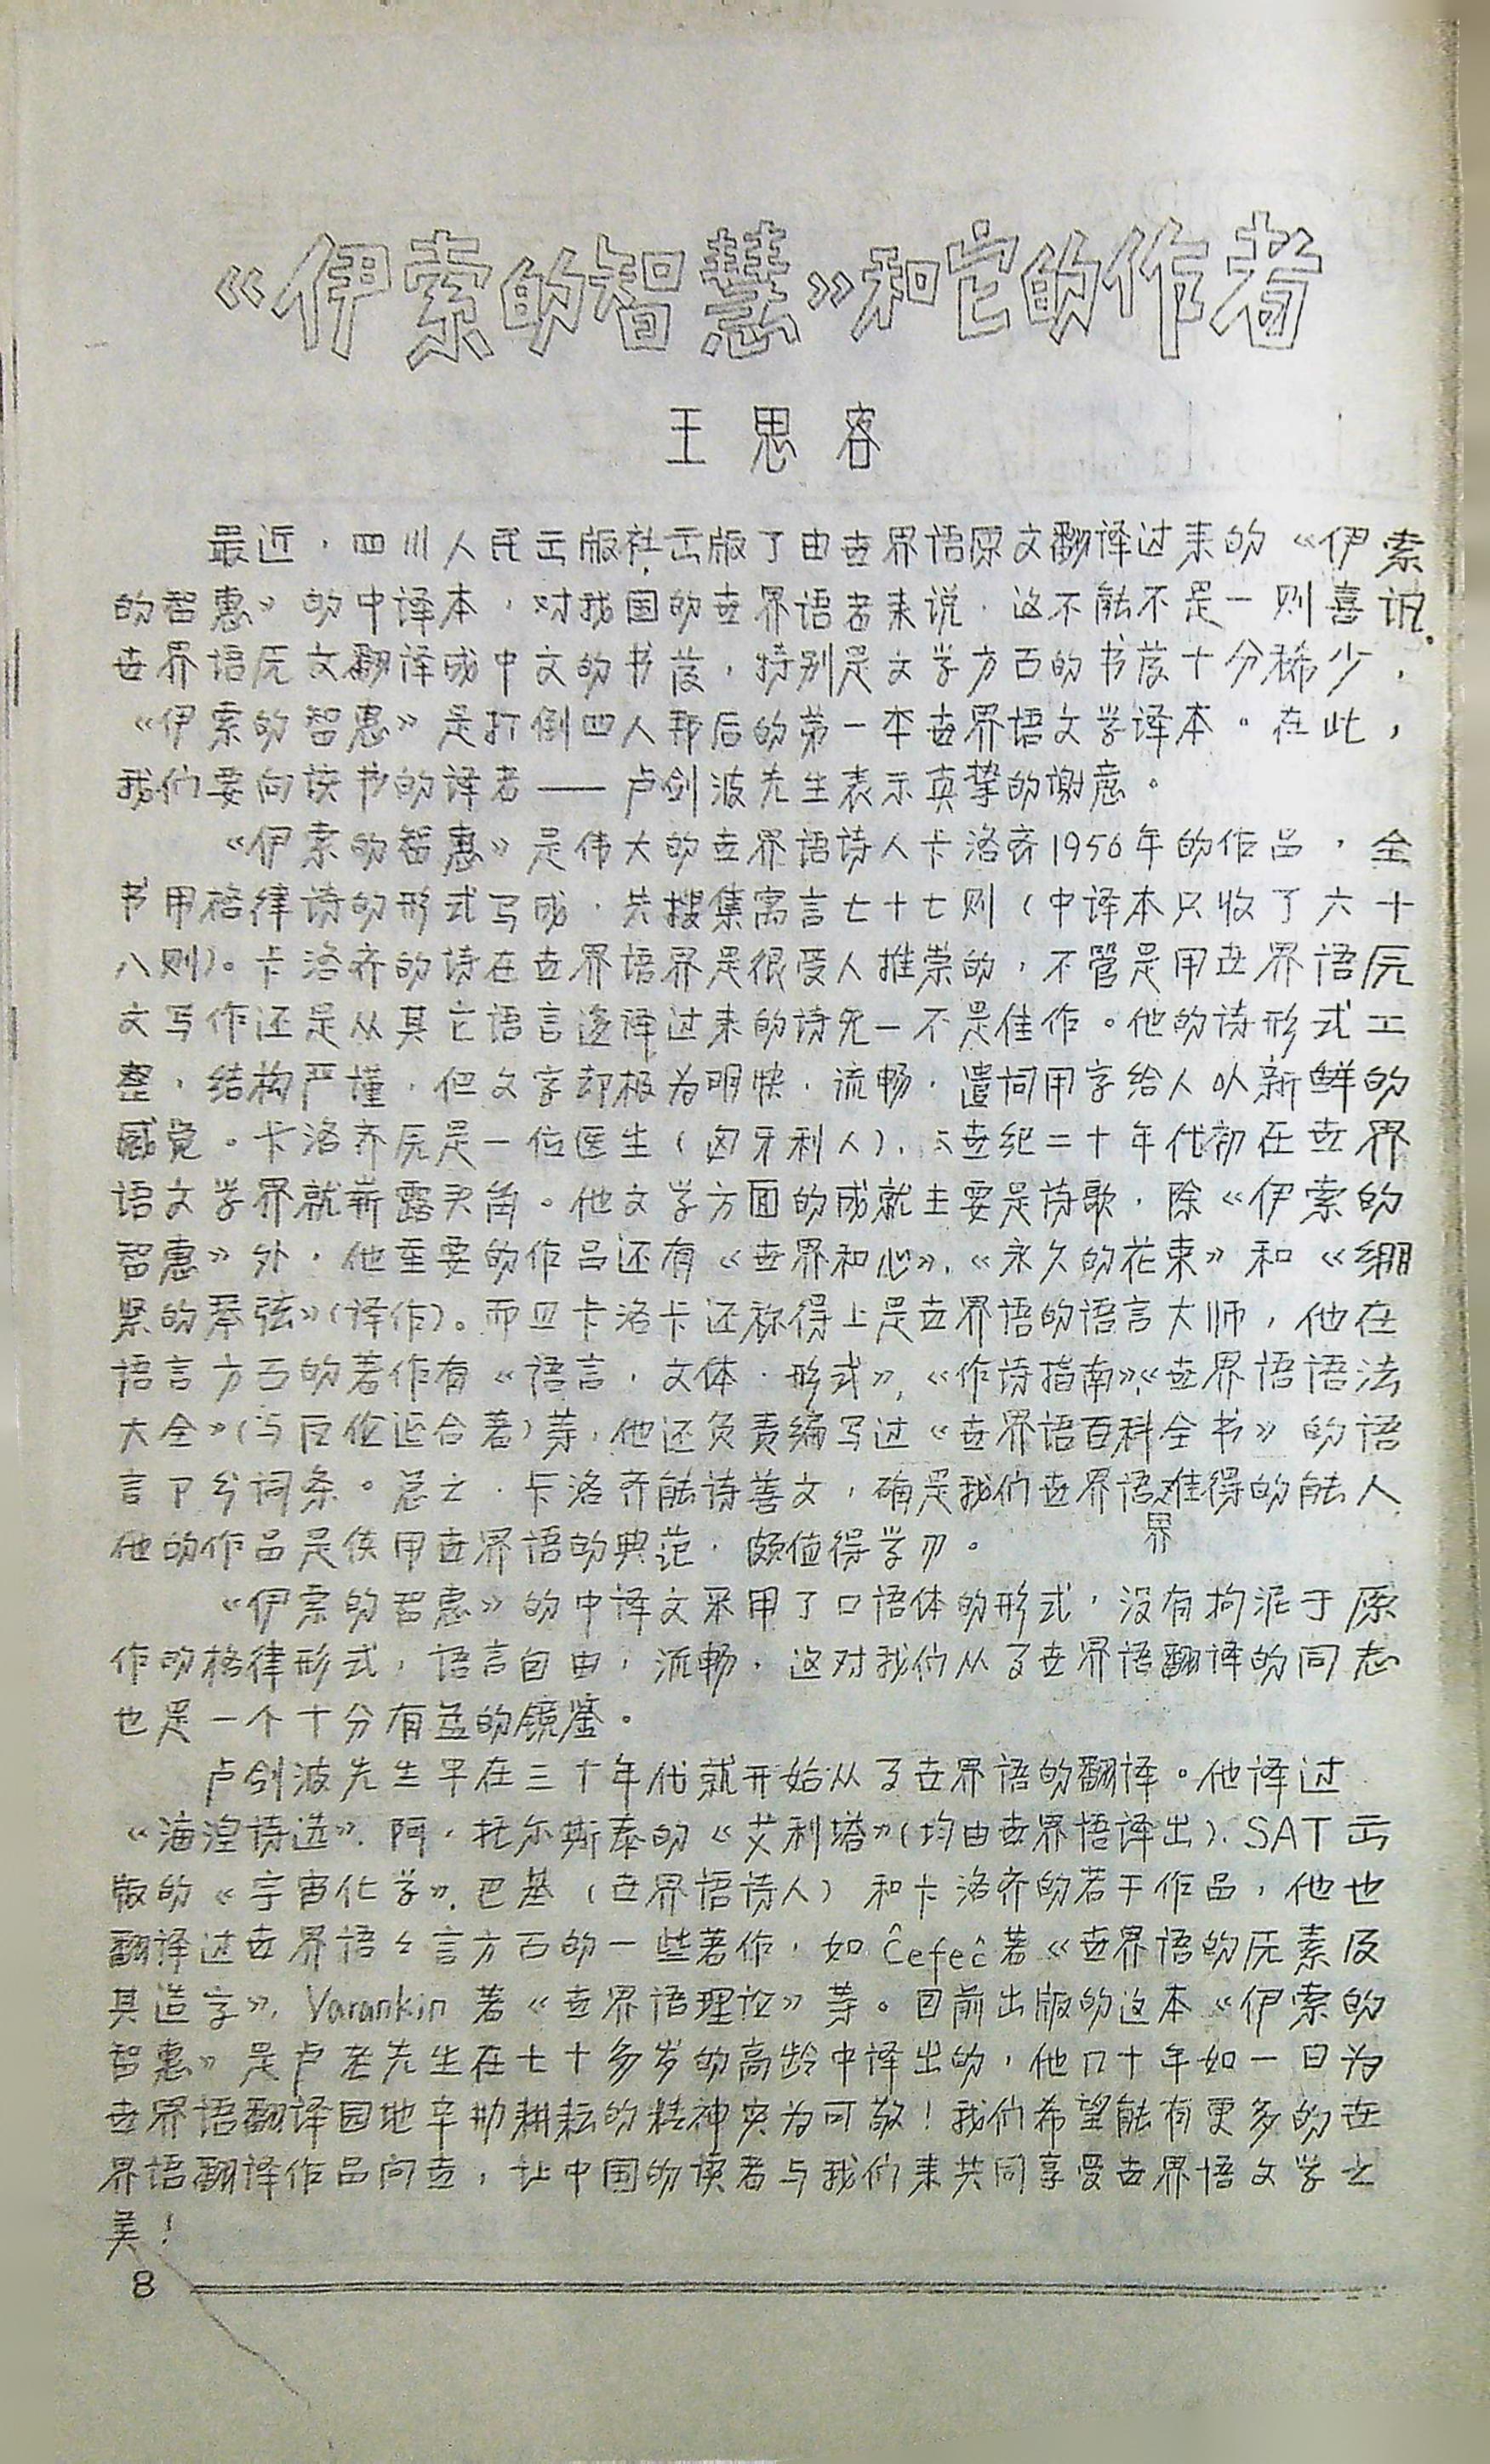 《伊索的智慧》和它的作者
王思客
最近，四川人民出版社出版了由世界语原文翻译过来的《伊索
的智惠》的中译本，对我国的世界语者来说，这不能不是一则喜讯。
世界语原文翻译成中文的书芨，特别是文学方面的书芨十分稀少，
《伊索的智惠》是打倒四人邦后的第一本世界语文学译本。在此，
我们要向该书的译者——卢剑波先生表示真挚的谢意。
《伊索的智惠》是伟大的世界语诗人卡洛齐1956年的作品，全
书用格律诗的形式写成，共搜集寓言七十七则（中译本只收了六十
八则）。卡洛齐的诗在世界语界是很受人推崇的，不管是用世界语原
文写作还是从其它语言迻译过来的诗无一不是佳作。他的诗形式工
整，结构严谨，但文字却极为明快、流畅，遣词用字给人以新鲜的
感觉。卡洛齐原是一位医生（匈牙利人），世纪二十年代初在世界
语文学界就崭露头角。他文学方面的成就主要是诗歌，除《伊索的
智惠》外，他重要的作品还有《世界和心》、《永久的花束》和《绷
紧的琴弦》（译作）。而且卡洛卡还称得上是世界语的语言大师，他在
语言方面的著作有《语言，文体，形式》、《作诗指南》、《世界语语法
大全》（与合著）等，他还负责编写过《世界语百科全书》的语
言卩分词条。总之，卡洛齐能诗善文，确是我们世界语界难得的能人
他的作品是使用世界语的典范，颇值得学习。
《伊索的智惠》的中译文采用了口语体的形式，没有拘泥于原
作的格律形式，语言自由，流畅，这对我们从事世界语翻译的同志
也是一个十分有益的镜鉴。
卢剑波先生早在三十年代就开始从事世界语的翻译。他译过
《海涅诗选》、阿·托尔斯泰的《艾利塔》（均由世界语译出）、SAT出
版的《宇宙化学》、巴基（世界语诗人）和卡洛齐的若干作品，他也
翻译过世界语々言方面的一些著作，如Ĉefeĉ著《世界语的原素及
其造字》、Varankin著《世界语理论》等。目前出版的这本《伊索的
智惠》是卢老先生在七十多岁的高龄中译出的，他几十年如一日为
世界语翻译园地辛勤耕耘的精神实为可敬！我们希望能有更多的世
界语翻译作品问世，让中国的读者与我们来共同享受世界语文学之
美！
8